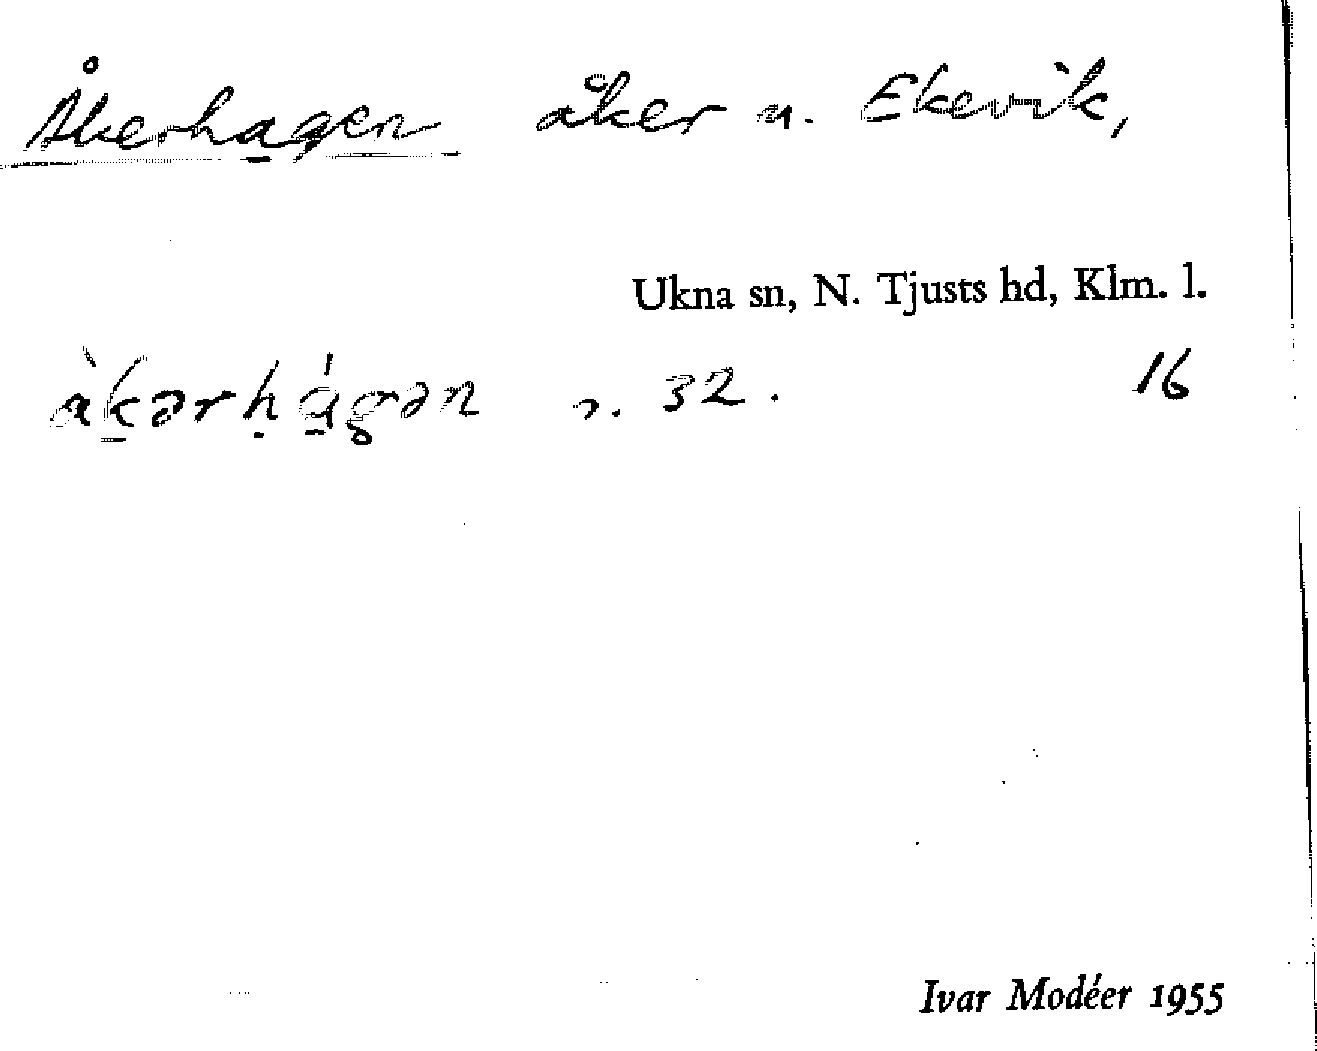 Åkerhagen åker n. Ekevik,
Ukna sn, N. Tjusts hd, Klm. l.
àkərḥá̱gən n. 32. 16
Ivar Modéer 1955